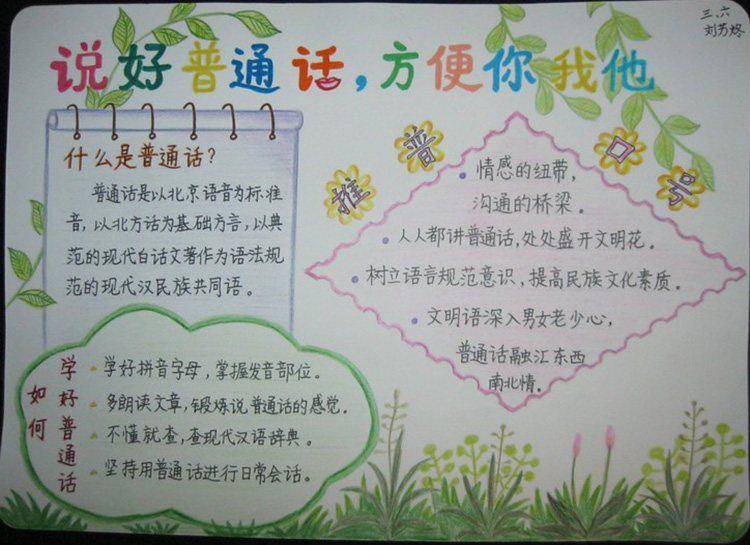 三.六
刘芳烙
说好普通话,方便你我他
什么是普通话?
普通话是以北京语音为标准
音,以北方话为基础方言,以典
范的现代白话文著作为语法规
范的现代汉民族共同语。
推普口号
情感的纽带,
沟通的桥梁。
人人都讲普通话,处处盛开文明花。
树立语言规范意识,提高民族文化素质。
文明语深入男女老少心,
普通话融汇东西
南北情。
如何
学好普通话
学好拼音字母,掌握发音部位。
多朗读文章,锻炼说普通话的感觉.
不懂就查,查现代汉语辞典。
坚持用普通话进行日常会话。